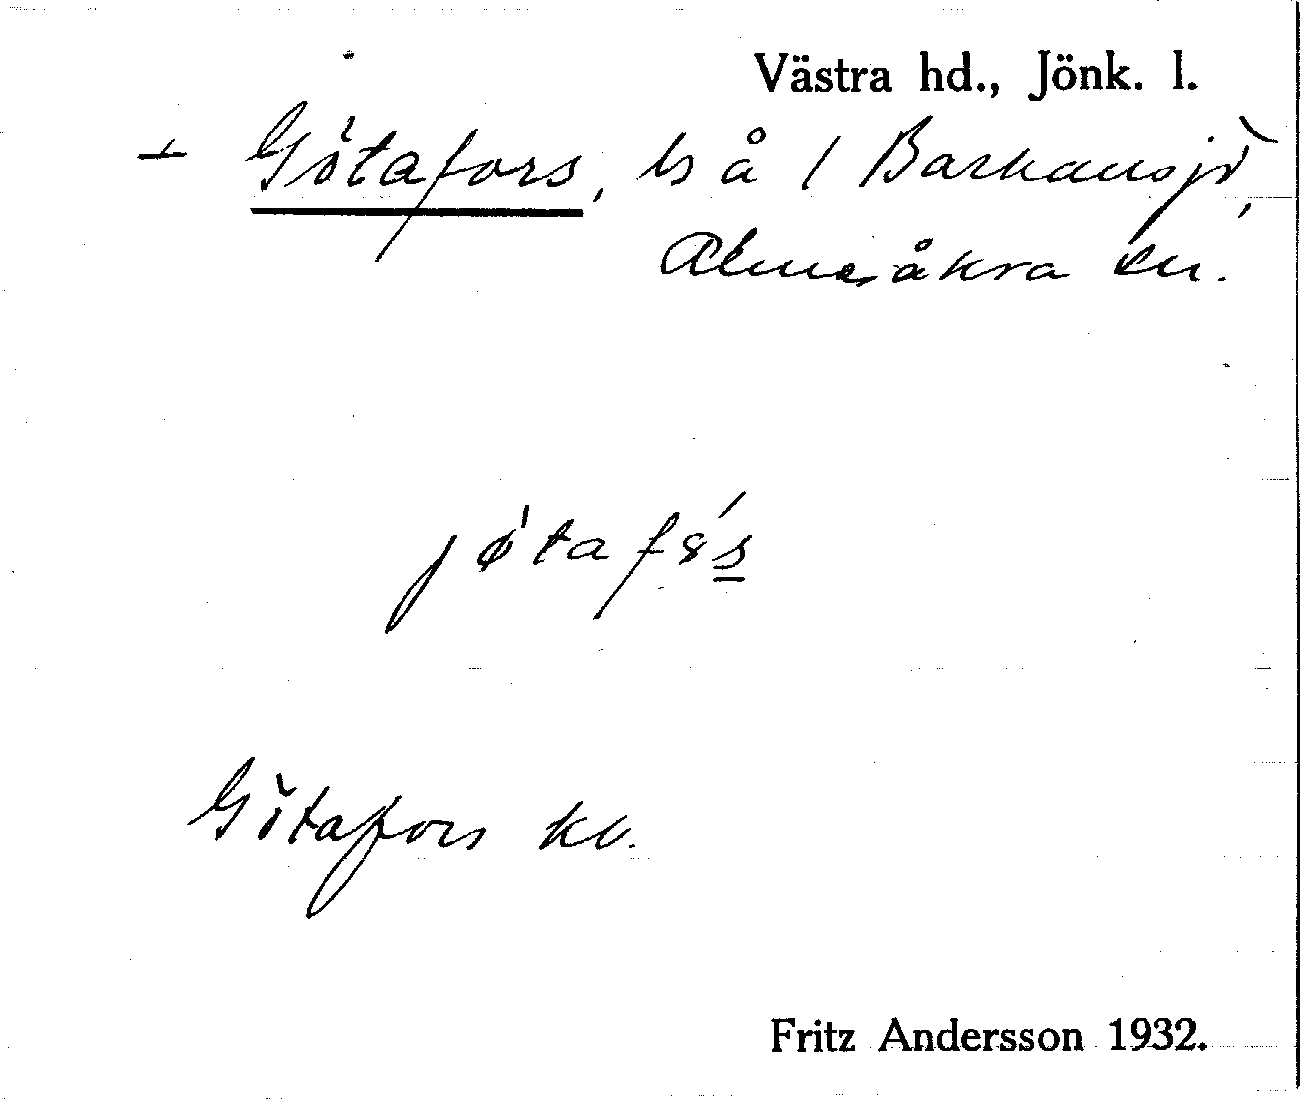 Västra hd., Jönk. l.
+ Götafors, ls å / Barkansjö,
Almesåkra sn.
jøtafs
Götafors kv.
Fritz Andersson 1932.